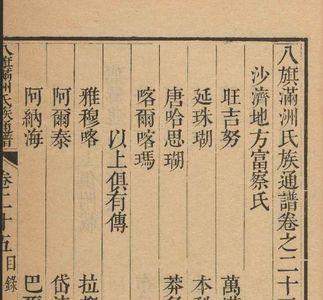 八旗滿洲氏族通譜卷之二十
沙濟地方富察氏
旺吉努 萬
延珠瑚 本科
唐哈思瑚 莽
喀爾喀瑪
以上俱有傳
雅穆喀 拉
阿爾泰 岱
阿納海 巴
八旗滿洲氏族通譜 卷二十五 目錄